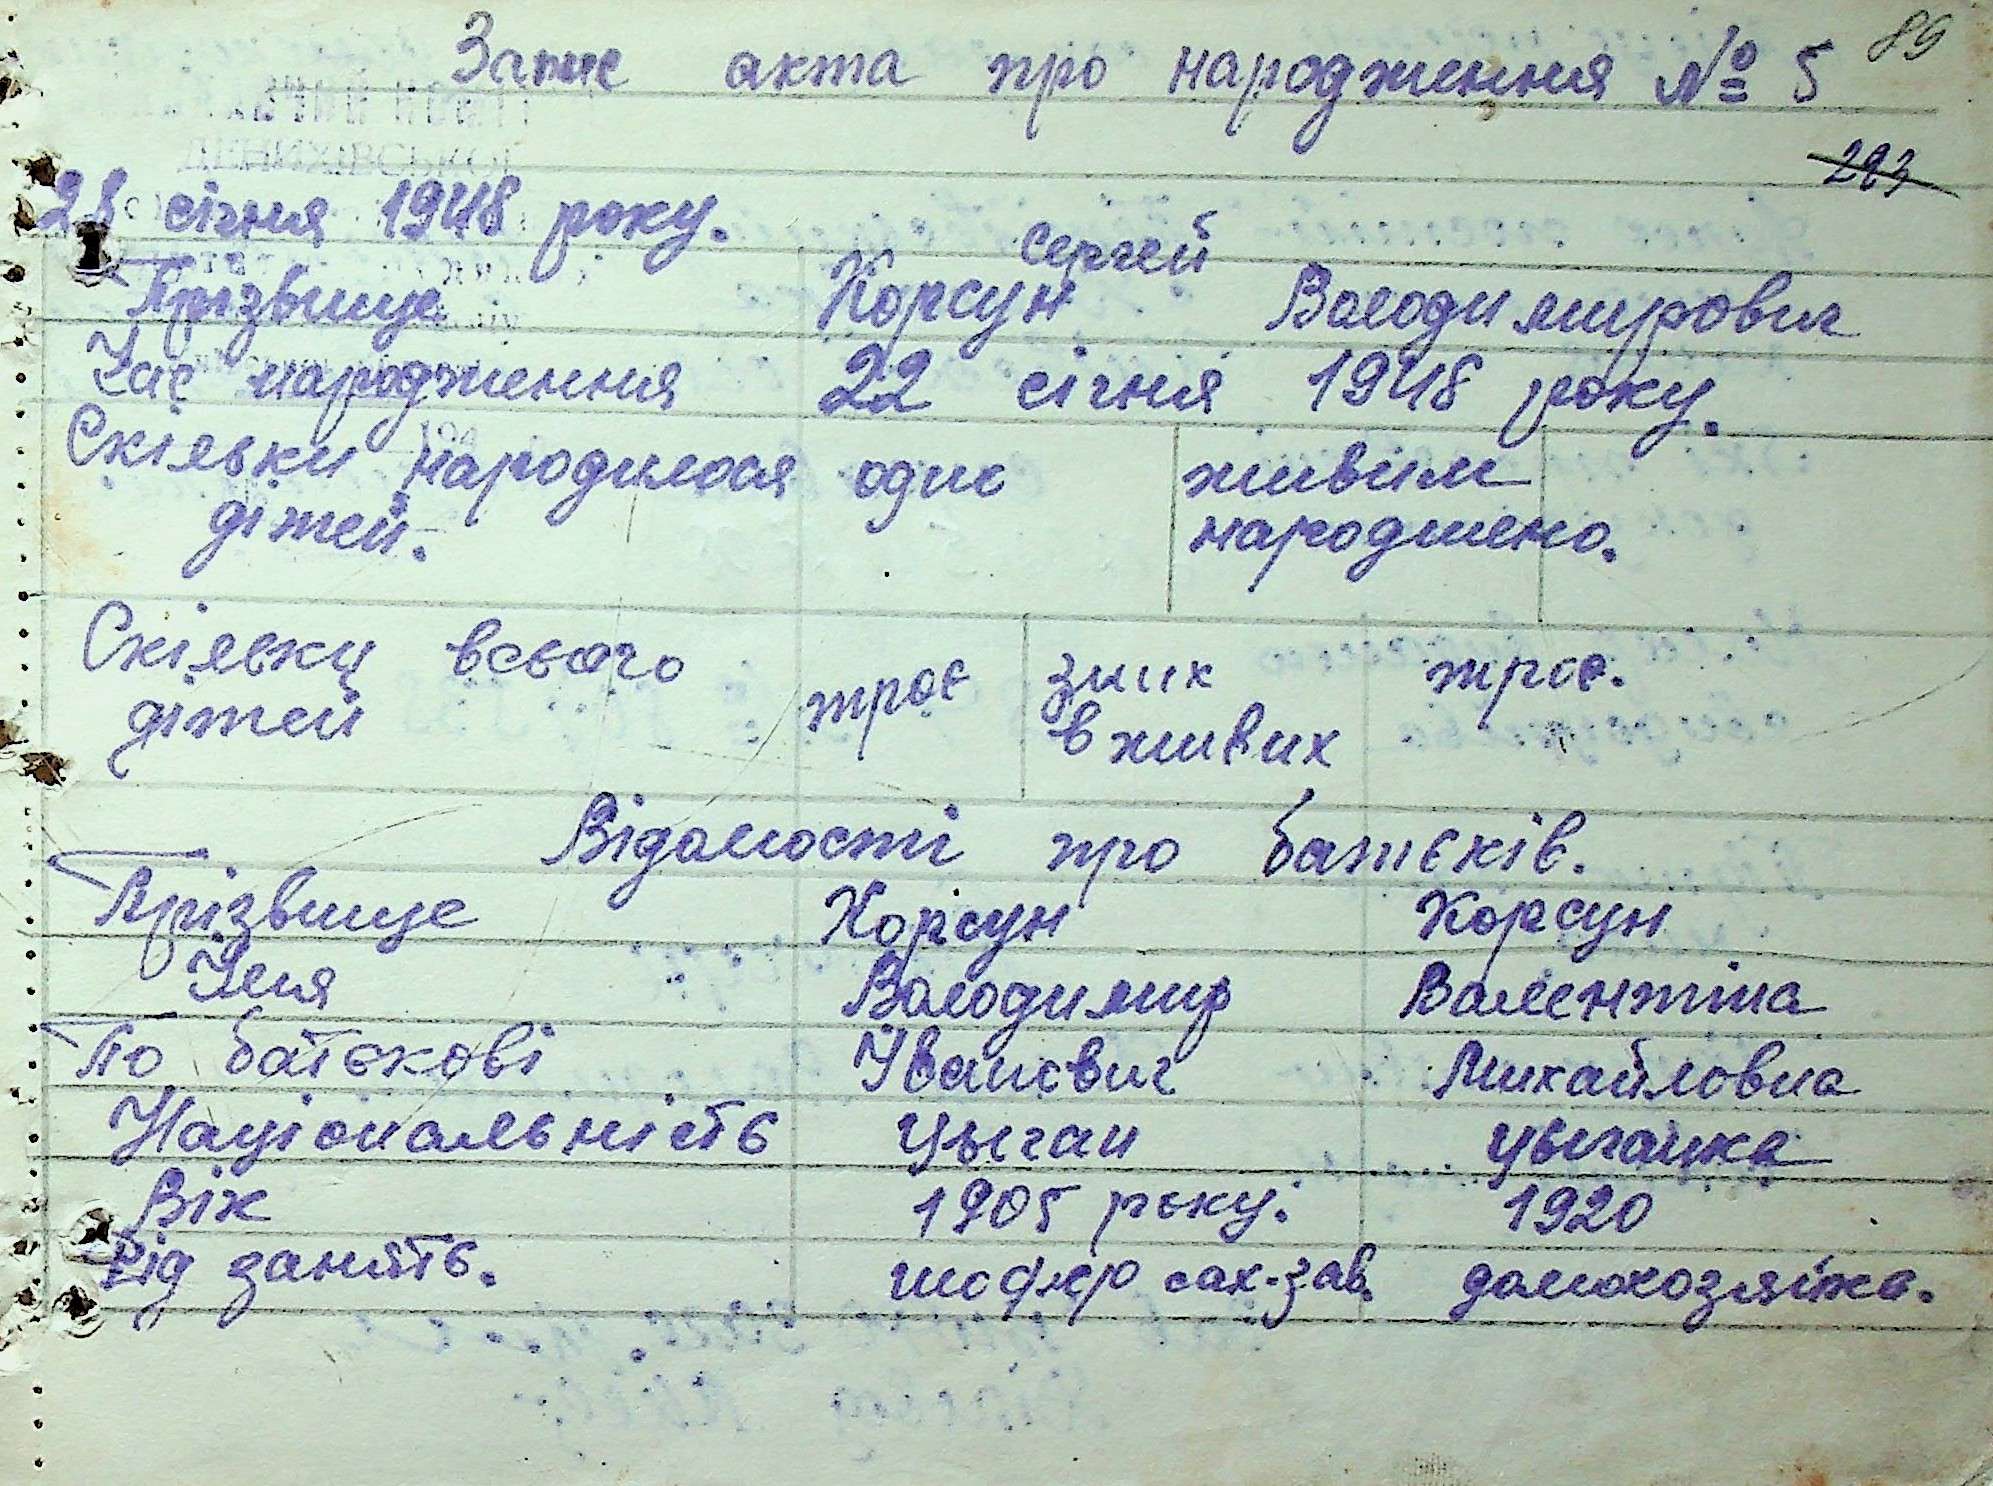 89
Запис акта про народження № 5
223
28 січня 1948 року.
Сергей
Прізвище Корсун Володимирович
Час народження 22 січня 1948 року.
Скільки народилося одне живим
дітей. народжено.
Скільки всього троє з них троє.
дітей в живих
Відомості про батьків.
Прізвище Корсун Корсун
Імя Володимир Валентина
По батькові Іванович Михайловна
Національність цыган цыганка
Вік 1905 року. 1920
Рід занять. шофер сах-зав. домохозяйка.